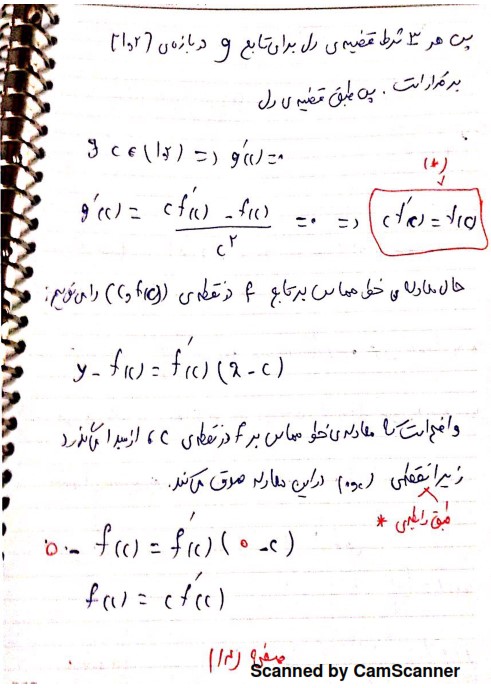 پس هر ۳ شرط قضیه‌ی رل برای تابع g در بازه‌ی [۱,۲]
برقرار است. پس طبق قضیه‌ی رل
∃ c ∈ (۱,۲) => g'(c) = ۰
(*)
g'(c) = (c f'(c) - f(c)) / c^۲ = ۰ => c f'(c) = f(c)
حال معادله‌ی خط مماس بر تابع f در نقطه‌ی (c, f(c)) را می‌نویسیم:
y - f(c) = f'(c) (x - c)
واضح است که معادله‌ی خط مماس بر f در نقطه‌ی c، از مبدا می‌گذرد
زیرا نقطه‌ی (0,0) در این معادله صدق می‌کند.
طبق رابطه‌ی *
0 - f(c) = f'(c) (0 - c)
f(c) = c f'(c)
Scanned by CamScanner